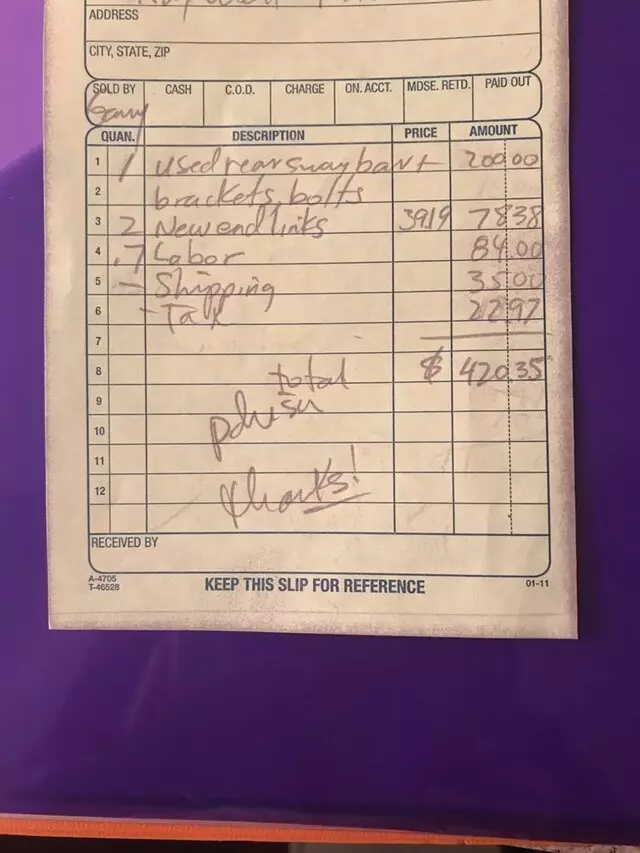 ADDRESS
CITY, STATE, ZIP
SOLD BY CASH C.O.D. CHARGE ON. ACCT. MDSE. RETD. PAID OUT
Gary
QUAN. DESCRIPTION PRICE AMOUNT
1 1 used rear sway bar + 200.00
2 brackets, bolts
3 2 New end links 39.19 78.38
4 .7 Labor 84.00
5 - Shipping 35.00
6 - Tax 22.97
7
8 total $ 420.35
9
10
11
12 thanks!
RECEIVED BY
A-4705
T-46528
KEEP THIS SLIP FOR REFERENCE 01-11